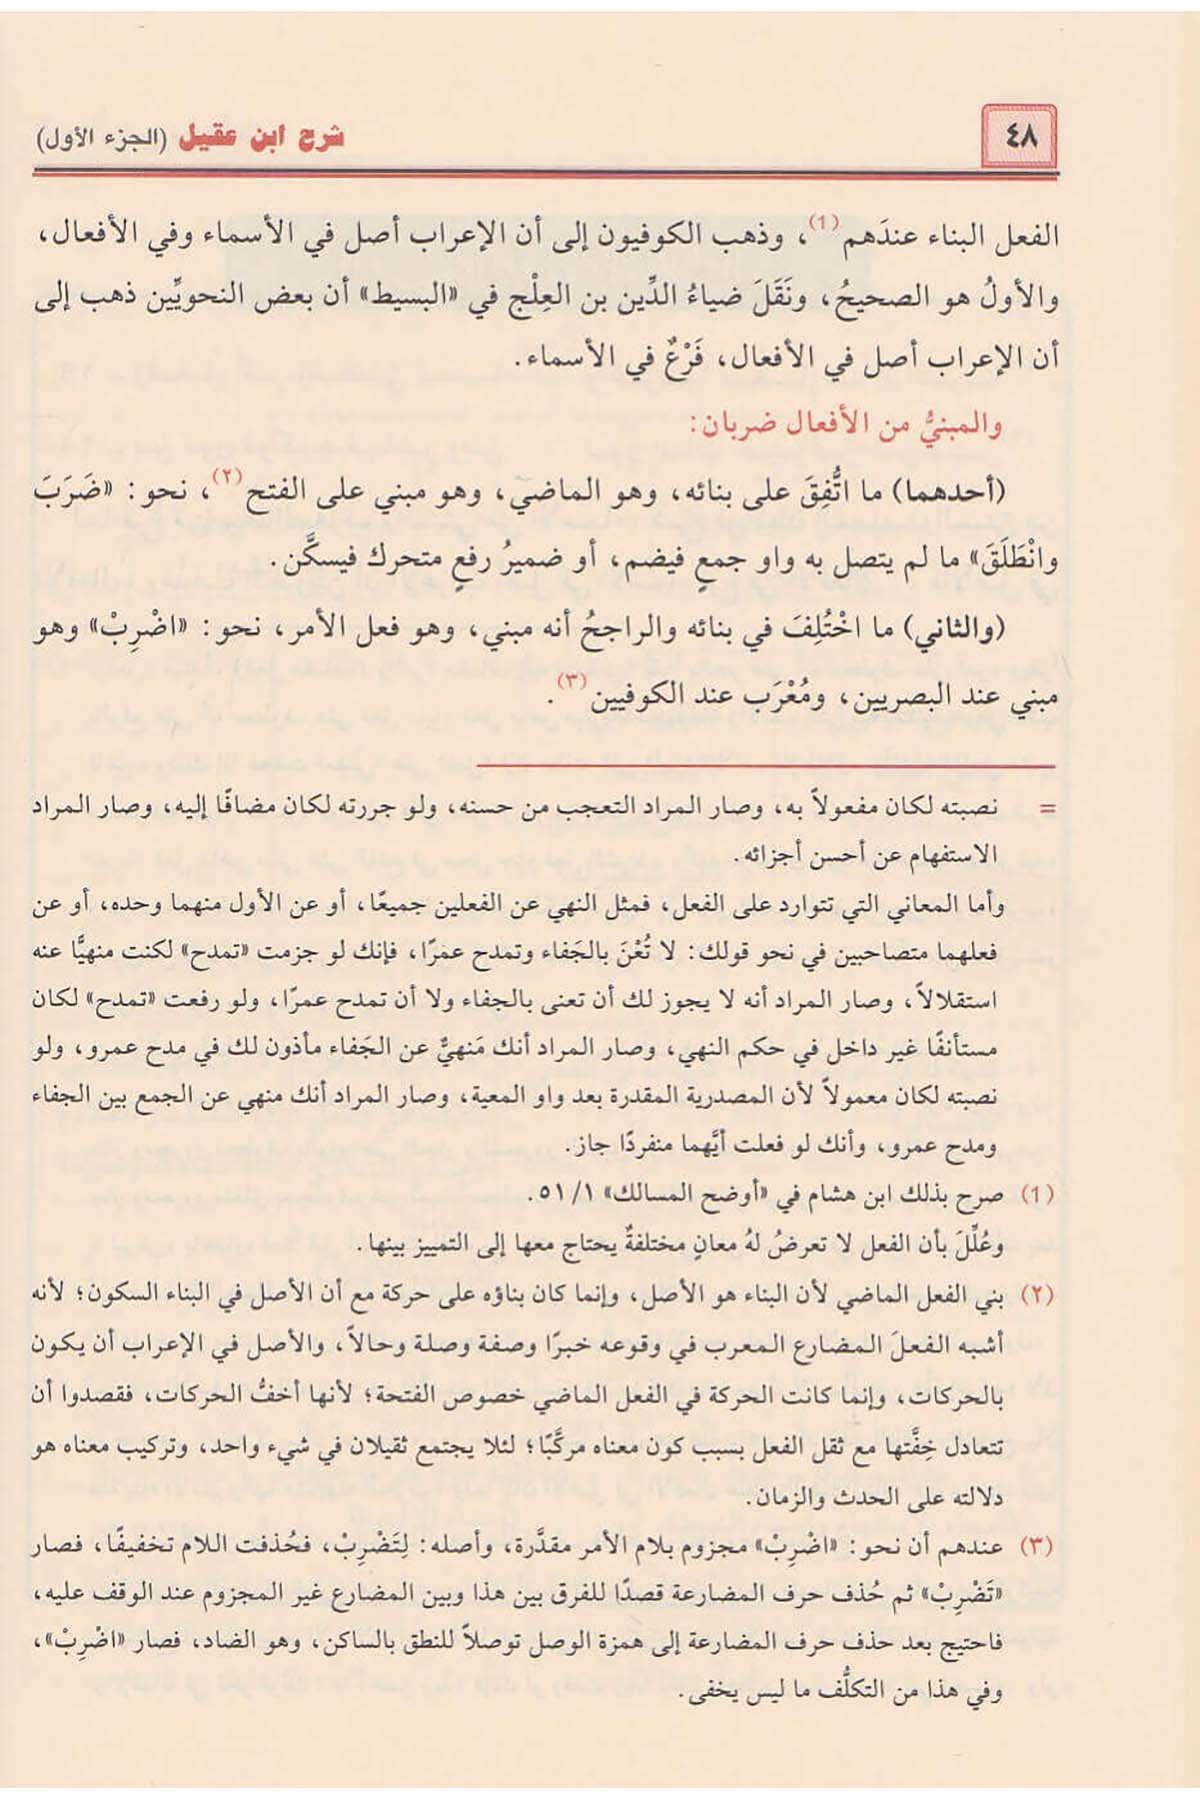 ٤٨
شرح ابن عقيل (الجزء الأول)
الفعل البناء عندَهم(١)، وذهب الكوفيون إلى أن الإعراب أصل في الأسماء وفي الأفعال،
والأولُ هو الصحيحُ، ونَقَلَ ضياءُ الدِّين بن العِلْج في «البسيط» أن بعض النحويِّين ذهب إلى
أن الإعراب أصل في الأفعال، فَرْعٌ في الأسماء.
والمبنيُّ من الأفعال ضربان:
(أحدهما) ما اتُّفِقَ على بنائه، وهو الماضي، وهو مبني على الفتح(٢)، نحو: «ضَرَبَ
وانْطَلَقَ» ما لم يتصل به واو جمعٍ فيضم، أو ضميرُ رفعٍ متحرك فيسكَّن.
(والثاني) ما اخْتُلِفَ في بنائه والراجحُ أنه مبني، وهو فعل الأمر، نحو: «اضْرِبْ» وهو
مبني عند البصريين، ومُعْرَب عند الكوفيين(٣).
= نصبته لكان مفعولاً به، وصار المراد التعجب من حسنه، ولو جررته لكان مضافًا إليه، وصار المراد
الاستفهام عن أحسن أجزائه.
وأما المعاني التي تتوارد على الفعل، فمثل النهي عن الفعلين جميعًا، أو عن الأول منهما وحده، أو عن
فعلهما متصاحبين في نحو قولك: لا تُعْنَ بالجَفاء وتمدح عمرًا، فإنك لو جزمت «تمدح» لكنت منهيًّا عنه
استقلالاً، وصار المراد أنه لا يجوز لك أن تعنى بالجفاء ولا أن تمدح عمرًا، ولو رفعت «تمدح» لكان
مستأنفًا غير داخل في حكم النهي، وصار المراد أنك مَنهيٌّ عن الجَفاء مأذون لك في مدح عمرو، ولو
نصبته لكان معمولاً لأن المصدرية المقدرة بعد واو المعية، وصار المراد أنك منهي عن الجمع بين الجفاء
ومدح عمرو، وأنك لو فعلت أيَّهما منفردًا جاز.
(١) صرح بذلك ابن هشام في «أوضح المسالك» ١/ ٥١.
وعُلِّلَ بأن الفعل لا تعرضُ لهُ معانٍ مختلفةٌ يحتاج معها إلى التمييز بينها.
(٢) بني الفعل الماضي لأن البناء هو الأصل، وإنما كان بناؤه على حركة مع أن الأصل في البناء السكون؛ لأنه
أشبه الفعلَ المضارع المعرب في وقوعه خبرًا وصفة وصلة وحالاً، والأصل في الإعراب أن يكون
بالحركات، وإنما كانت الحركة في الفعل الماضي خصوص الفتحة؛ لأنها أخفُّ الحركات، فقصدوا أن
تتعادل خِفَّتها مع ثقل الفعل بسبب كون معناه مركَّبًا؛ لئلا يجتمع ثقيلان في شيء واحد، وتركيب معناه هو
دلالته على الحدث والزمان.
(٣) عندهم أن نحو: «اضْرِبْ» مجزوم بلام الأمر مقدَّرة، وأصله: لِتَضْرِبْ، فحُذفت اللام تخفيفًا، فصار
«تَضْرِبْ» ثم حُذف حرف المضارعة قصدًا للفرق بين هذا وبين المضارع غير المجزوم عند الوقف عليه،
فاحتيج بعد حذف حرف المضارعة إلى همزة الوصل توصلاً للنطق بالساكن، وهو الضاد، فصار «اضْرِبْ»،
وفي هذا من التكلُّف ما ليس يخفى.